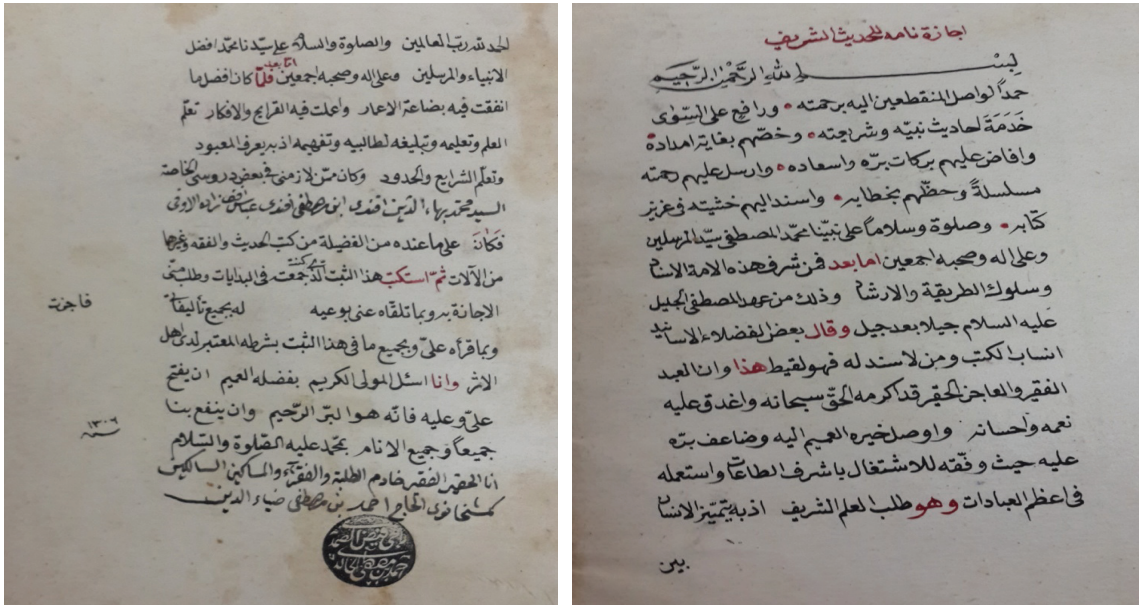 اجازة نامه للحديث الشريف
بسم الله الرحمن الرحيم
حمداً لواصل المنقطعين اليه برحمته • ورافع على السّوٰى
خَدَمَةَ لحاديث نبيّه وشريعته • وخصّهم بغاية امداده •
وافاض عليهم بركات برّه واسعاده • وارسل عليهم رحمته
مسلسلةً وحظّهم بخطابه • واسند اليهم خشيته فى عزيز
كتابه • وصلوة وسلاماً على نبيّنا محمّد المصطفى سيّد المرسلين
وعلى اله وصحبه اجمعين اما بعد فمن شرف هذه الامة الاسناد
وسلوك الطريقة والارشاد وذلك من عهد المصطفى الجليل
عليه السلام جيلا بعد جيل وقال بعض الفضلاء الاسانيد
انساب الكتب ومن لا سند له فهو لقيط هذا وان العبد
الفقير والعاجز الحقير قد اكرمه الحقّ سبحانه واغدق عليه
نعمه واحسانه واوصل خيره العميم اليه وضاعف برّه
عليه حيث وفّقه للاشتغال باشرف الطاعات واستعمله
فى اعظم العبادات وهو طلب العلم الشريف اذ به يتميّز الانسان
بين
الحمد لله ربّ العالمين والصلوة والسلام على سيّدنا محمّد افضل
الانبياء والمرسلين وعلى اله وصحبه اجمعين امّا بعد فلمّا كان افضل ما
انفقت فيه بضاعة الاعمار واعملت فيه القرايح والافكار تعلّم
العلم وتعليمه وتبليغه لطالبيه وتفهيمه اذ به يعرف المعبود
وتعلّم الشرايع والحدود وكان ممّن لازمنى فى بعض دروسى الخاصة
السيد محمّد بهاء الدّين افندى ابن مصطفى افندى عباس زاده الاوفى
فكانَ على ما عنده من الفضيلة من كتب الحديث والفقه وغيرها
من الآلات ثمّ استكتب هذا الثبت الّذى كنت جمعت فى البدايات وطلب منّى
الاجازة به وبما تلقّاه عنى بوعيه له بجميع تأليفاتى
فاجزت
وبما قرأه علىّ وبجميع ما فى هذا الثبت بشرطه المعتبر لدى اهل
الاثر وانا اسئل المولى الكريم بفضله العميم ان يفتح
علىّ وعليه فانّه هو البرّ الرّحيم وان ينفع بنا
جميعاً وجميع الانام بمحمّد عليه الصّلوة والسّلام
سنه ١٣٠٦
انا الحقير الفقير خادم الطلبة والفقراء والمساكين السالكين
كمشخانوى الحاج احمد بن مصطفى ضياء الدين